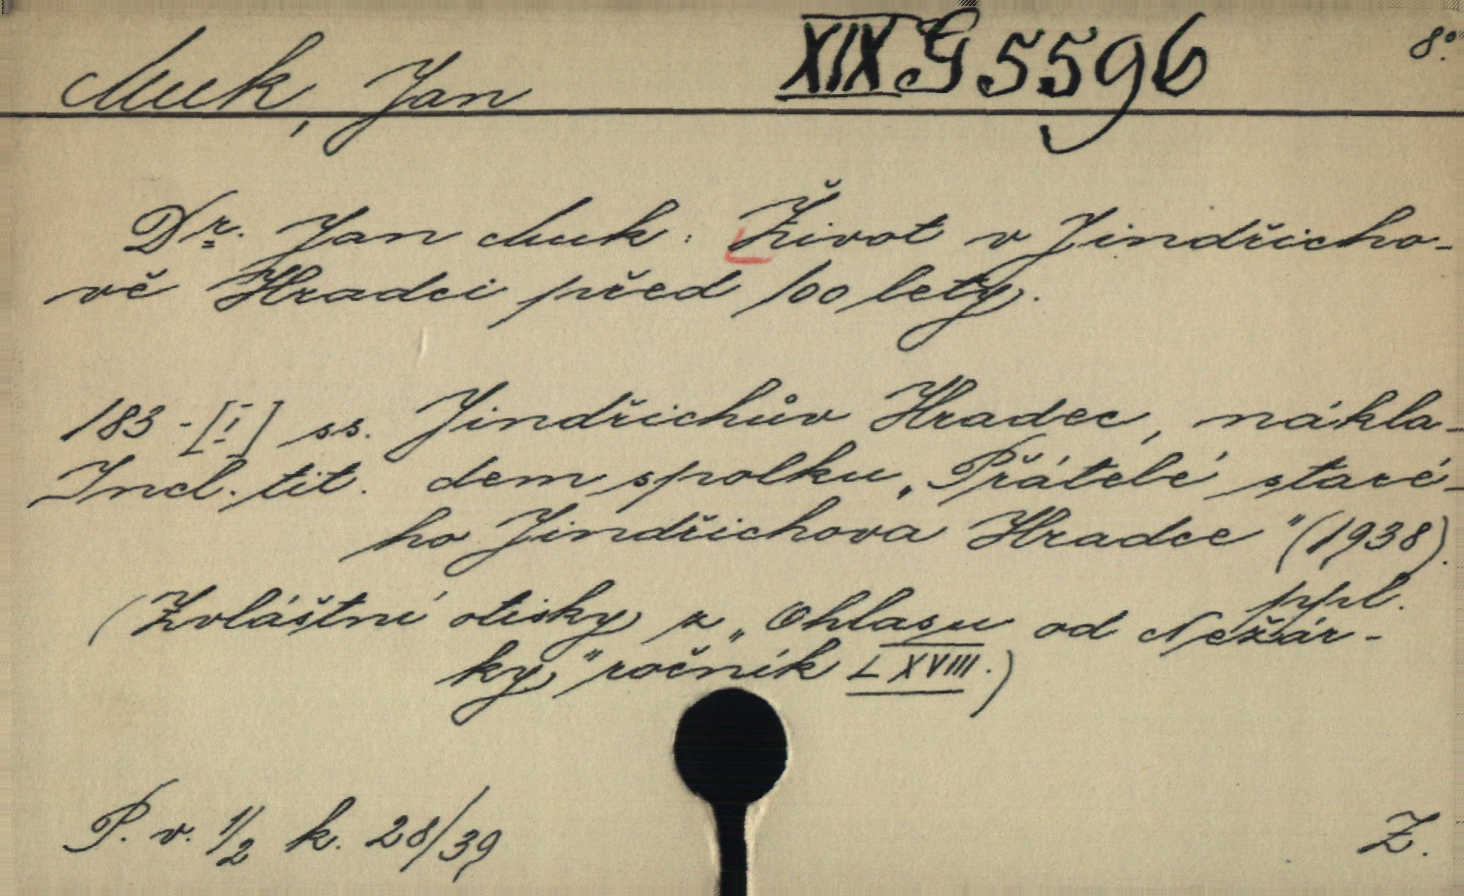 Muk, Jan XIX G 5596 8°.
Dr. Jan Muk: Život v Jindřicho-
vě Hradci před 100 lety.
183-[I] ss. Jindřichův Hradec, nákla-
Incl. tit. dem spolku „Přátelé staré-
ho Jindřichova Hradce" (1938).
(Zvláštní otisky z „Ohlasu od Nežár-
ky" ročník LXVIII.)
P. v. 1/2 k. 28/39 Z.